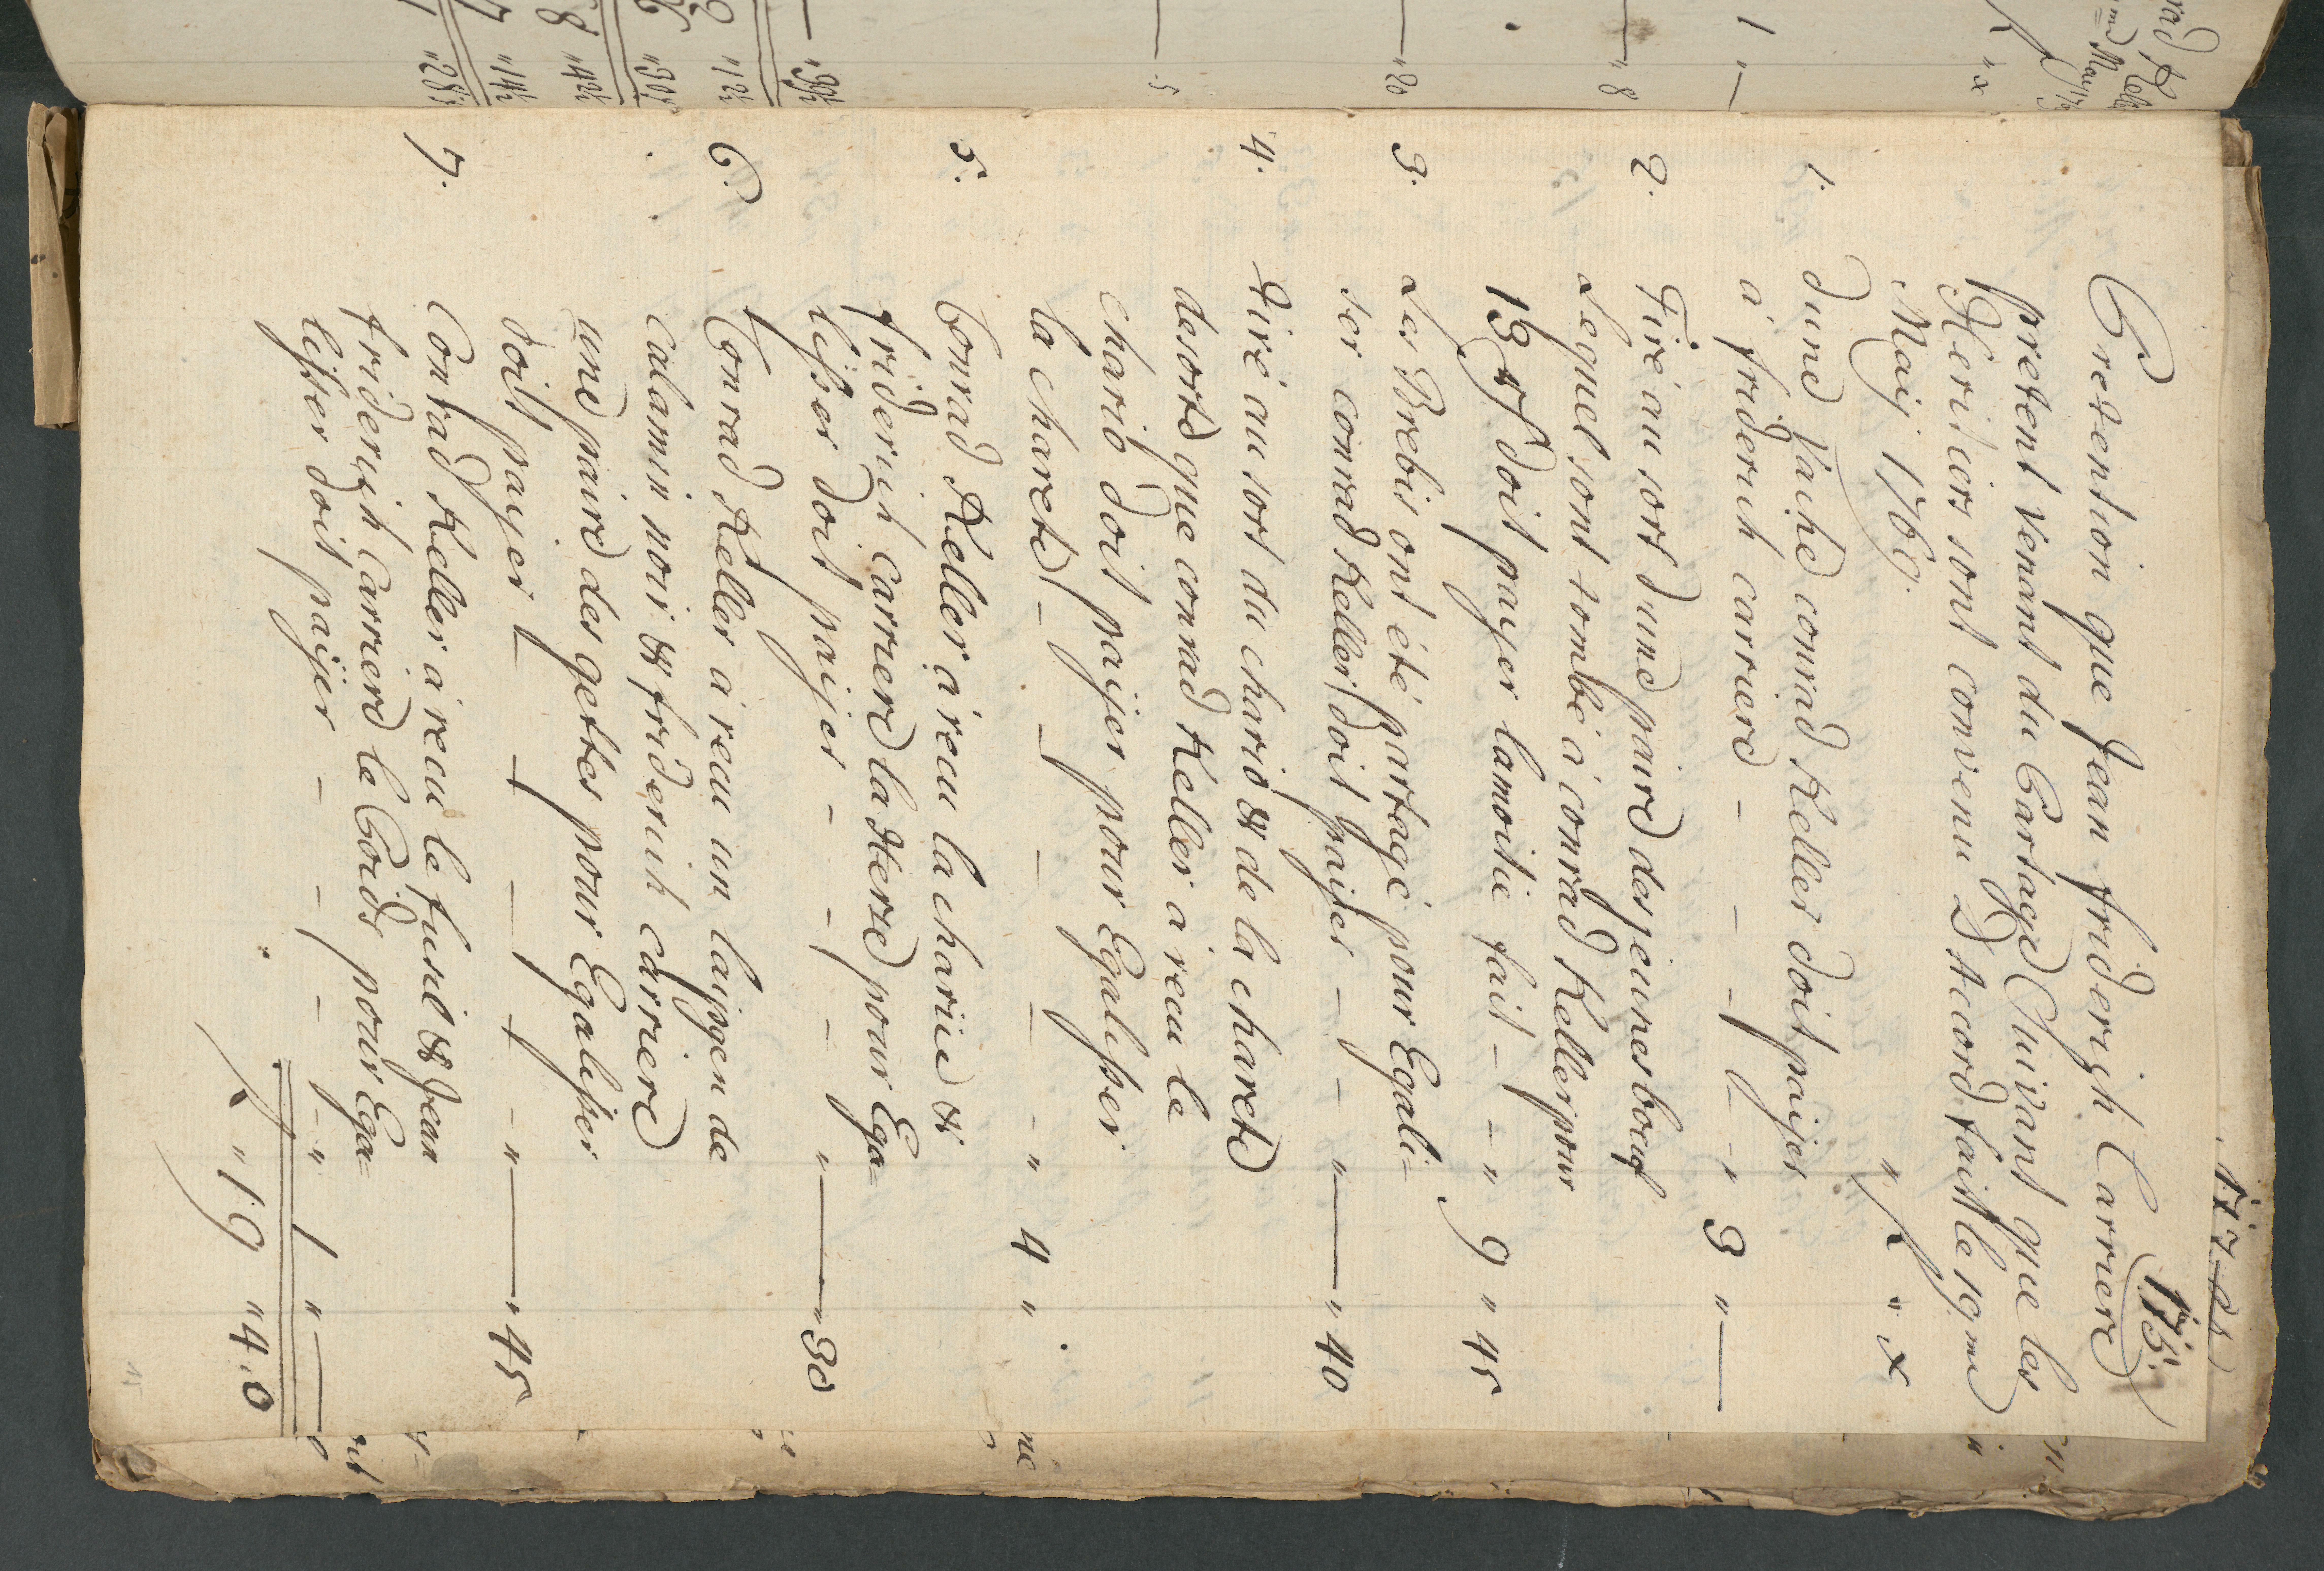 173.
Pretention que Jean friderigh Carriere
pretent venant du Partage Suivant que les
Heritiers sont convenu D Accord fait le 19me
Maij 1766.
" f " x
1. Dune Vache conrad Keller doit paijer
à friderich carriere - - - f - " 3 " —
2. Tiré au sort dune paire des jeunes boeuf
Lequel sont tombé à conrad Keller pour
doit payer lamoitie fait - - " 9 " 45
3. Les Brebis ont été partagé pour Egali=
ser conrad Keller doit paijer - - - " — " 40
4. Tiré au sort du chario & de la charete
desorte que conrad Keller a recu le
chario doit paijer pour Egalisser
la charete - - - - - " 4 " .
5. Conrad Keller a recu la charüe &
friderich carriere la Herse pour Ega=
lisser doit paijer - - - - " — " 30
6. Conrad Keller a recu un de
calamin noir & friderich carriere
une paire des gettes pour Egalisser
doit payer - - - - - " — " 45
7. Conrad Keller a recu le fusil & Jean
friderigh Carriere le Poids pour Ega=
lisser doit paijer - - - - " 1 " —
f " 19 " 40